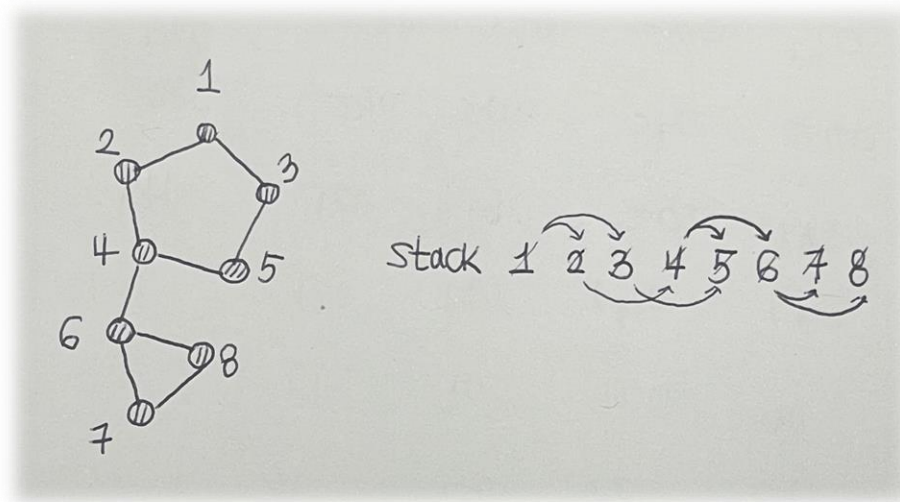 1
2
3
4
5
6
8
7
Stack 1 2 3 4 5 6 7 8